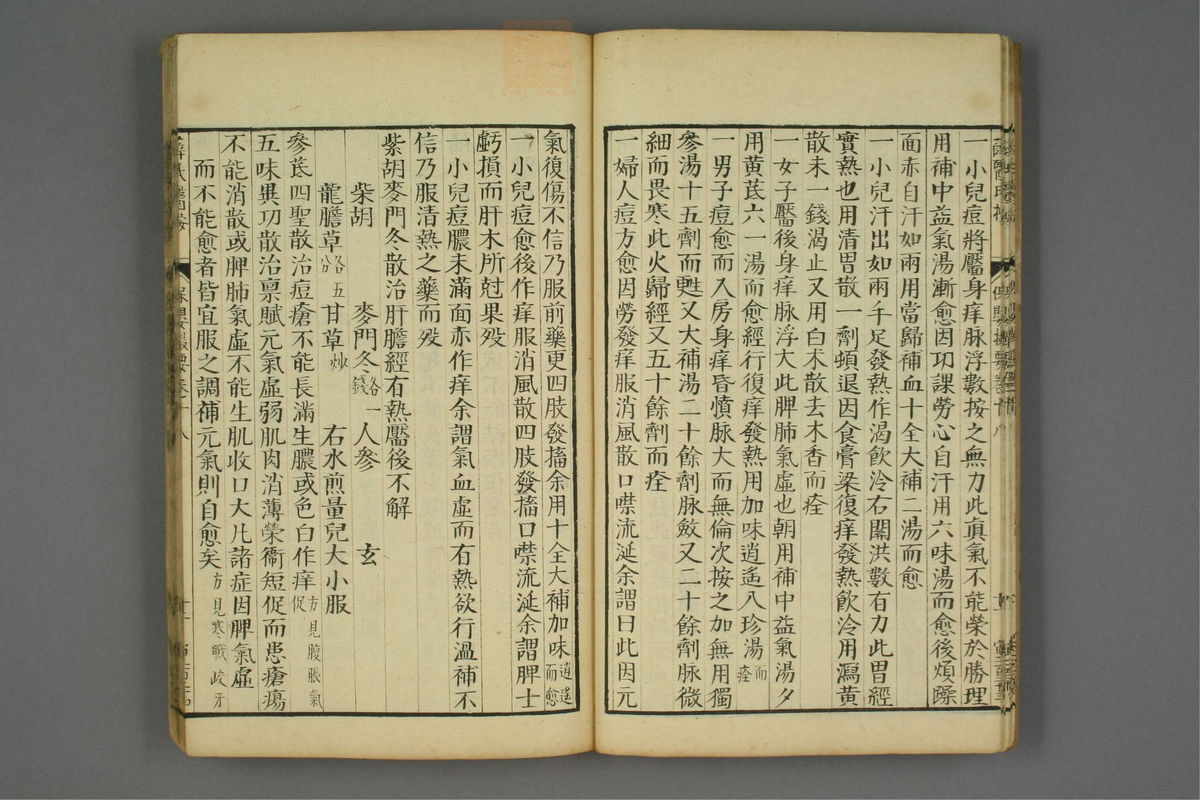 一小兒痘將靨身痒脉浮數按之無力此眞氣不能榮於腠理
用補中益氣湯漸愈因功課勞心自汗用六味湯而愈後煩躁
面赤自汗如雨用當歸補血十全大補二湯而愈
一小兒汗出如雨手足發熱作渴飲冷右關洪數有力此胃經
實熱也用清胃散一劑頓退因食膏梁復痒發熱飲冷用瀉黃
散未一錢渴止又用白术散去木香而痊
一女子靨後身痒脉浮大此脾肺氣虛也朝用補中益氣湯夕
用黃芪六一湯而愈經行復痒發熱用加味逍遙八珍湯而痊
一男子痘愈而入房身痒昏憒脉大而無倫次按之加無用獨
參湯十五劑而甦又大補湯二十餘劑脉斂又二十餘劑脉微
細而畏寒此火歸經又五十餘劑而痊
一婦人痘方愈因勞發痒服消風散口噤流涎余謂曰此因元
氣復傷不信乃服前藥更四肢發搐余用十全大補加味逍遙而愈
一小兒痘愈後作痒服消風散四肢發搐口噤流涎余謂脾土
虧損而肝木所尅果歿
一小兒痘膿未滿面赤作痒余謂氣血虛而有熱欲行溫補不
信乃服清熱之藥而歿
柴胡麥門冬散治肝膽經有熱靨後不解
柴胡 麥門冬各一錢 人參 玄
龍膽草各五分 甘草炒 右水煎量兒大小服
參芪四聖散治痘瘡不能長滿生膿或色白作痒方見腹脹氣促
五味異功散治稟賦元氣虛弱肌肉消薄榮衞短促而患瘡瘍
不能消散或脾肺氣虛不能生肌收口大凡諸症因脾氣虛
而不能愈者皆宜服之調補元氣則自愈矣方見寒戰咬牙